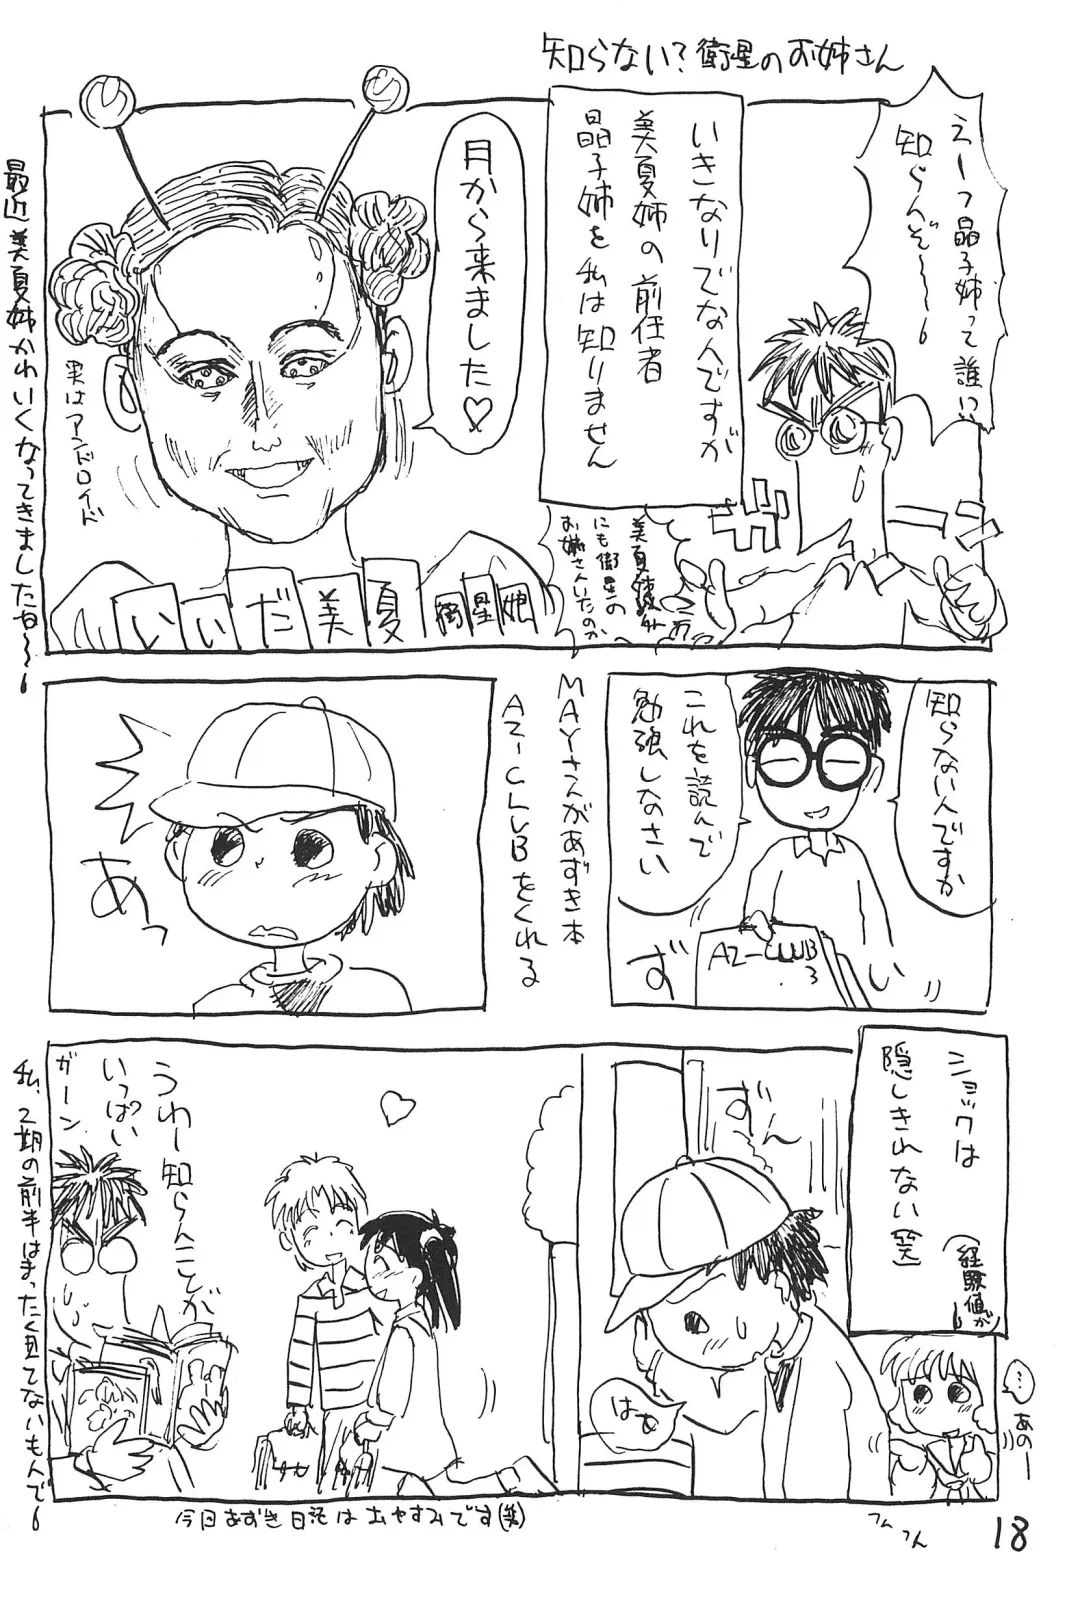 知らない？衛星のお姉さん
えーっ晶子姉って誰に
知らんぞ〜〜〜
いきなりでなんですが
美夏姉の前任者
晶子姉を私は知りません
ガーン
美夏姉以外
にも衛星の
お姉さんいたのか
月から来ました♡
実はアンドロイド
いいだ美夏 衛星娘
最近美夏姉かわいくなってきましたね〜〜
知らないんですか
これを読んで
勉強しなさい
AZ-CLUB
3
ずい
MAYさんがあずき本
AZ-CLUBをくれる
あっ
ショックは
隠しきれない(笑)
(経験値が)
ずん
はぁ
…
あのー
フム
フム
うわー知らんことが
いっぱい
ガーン
私、2期の前半はまったく見てないもんで〜
今日あずき日記はおやすみです(笑)
18